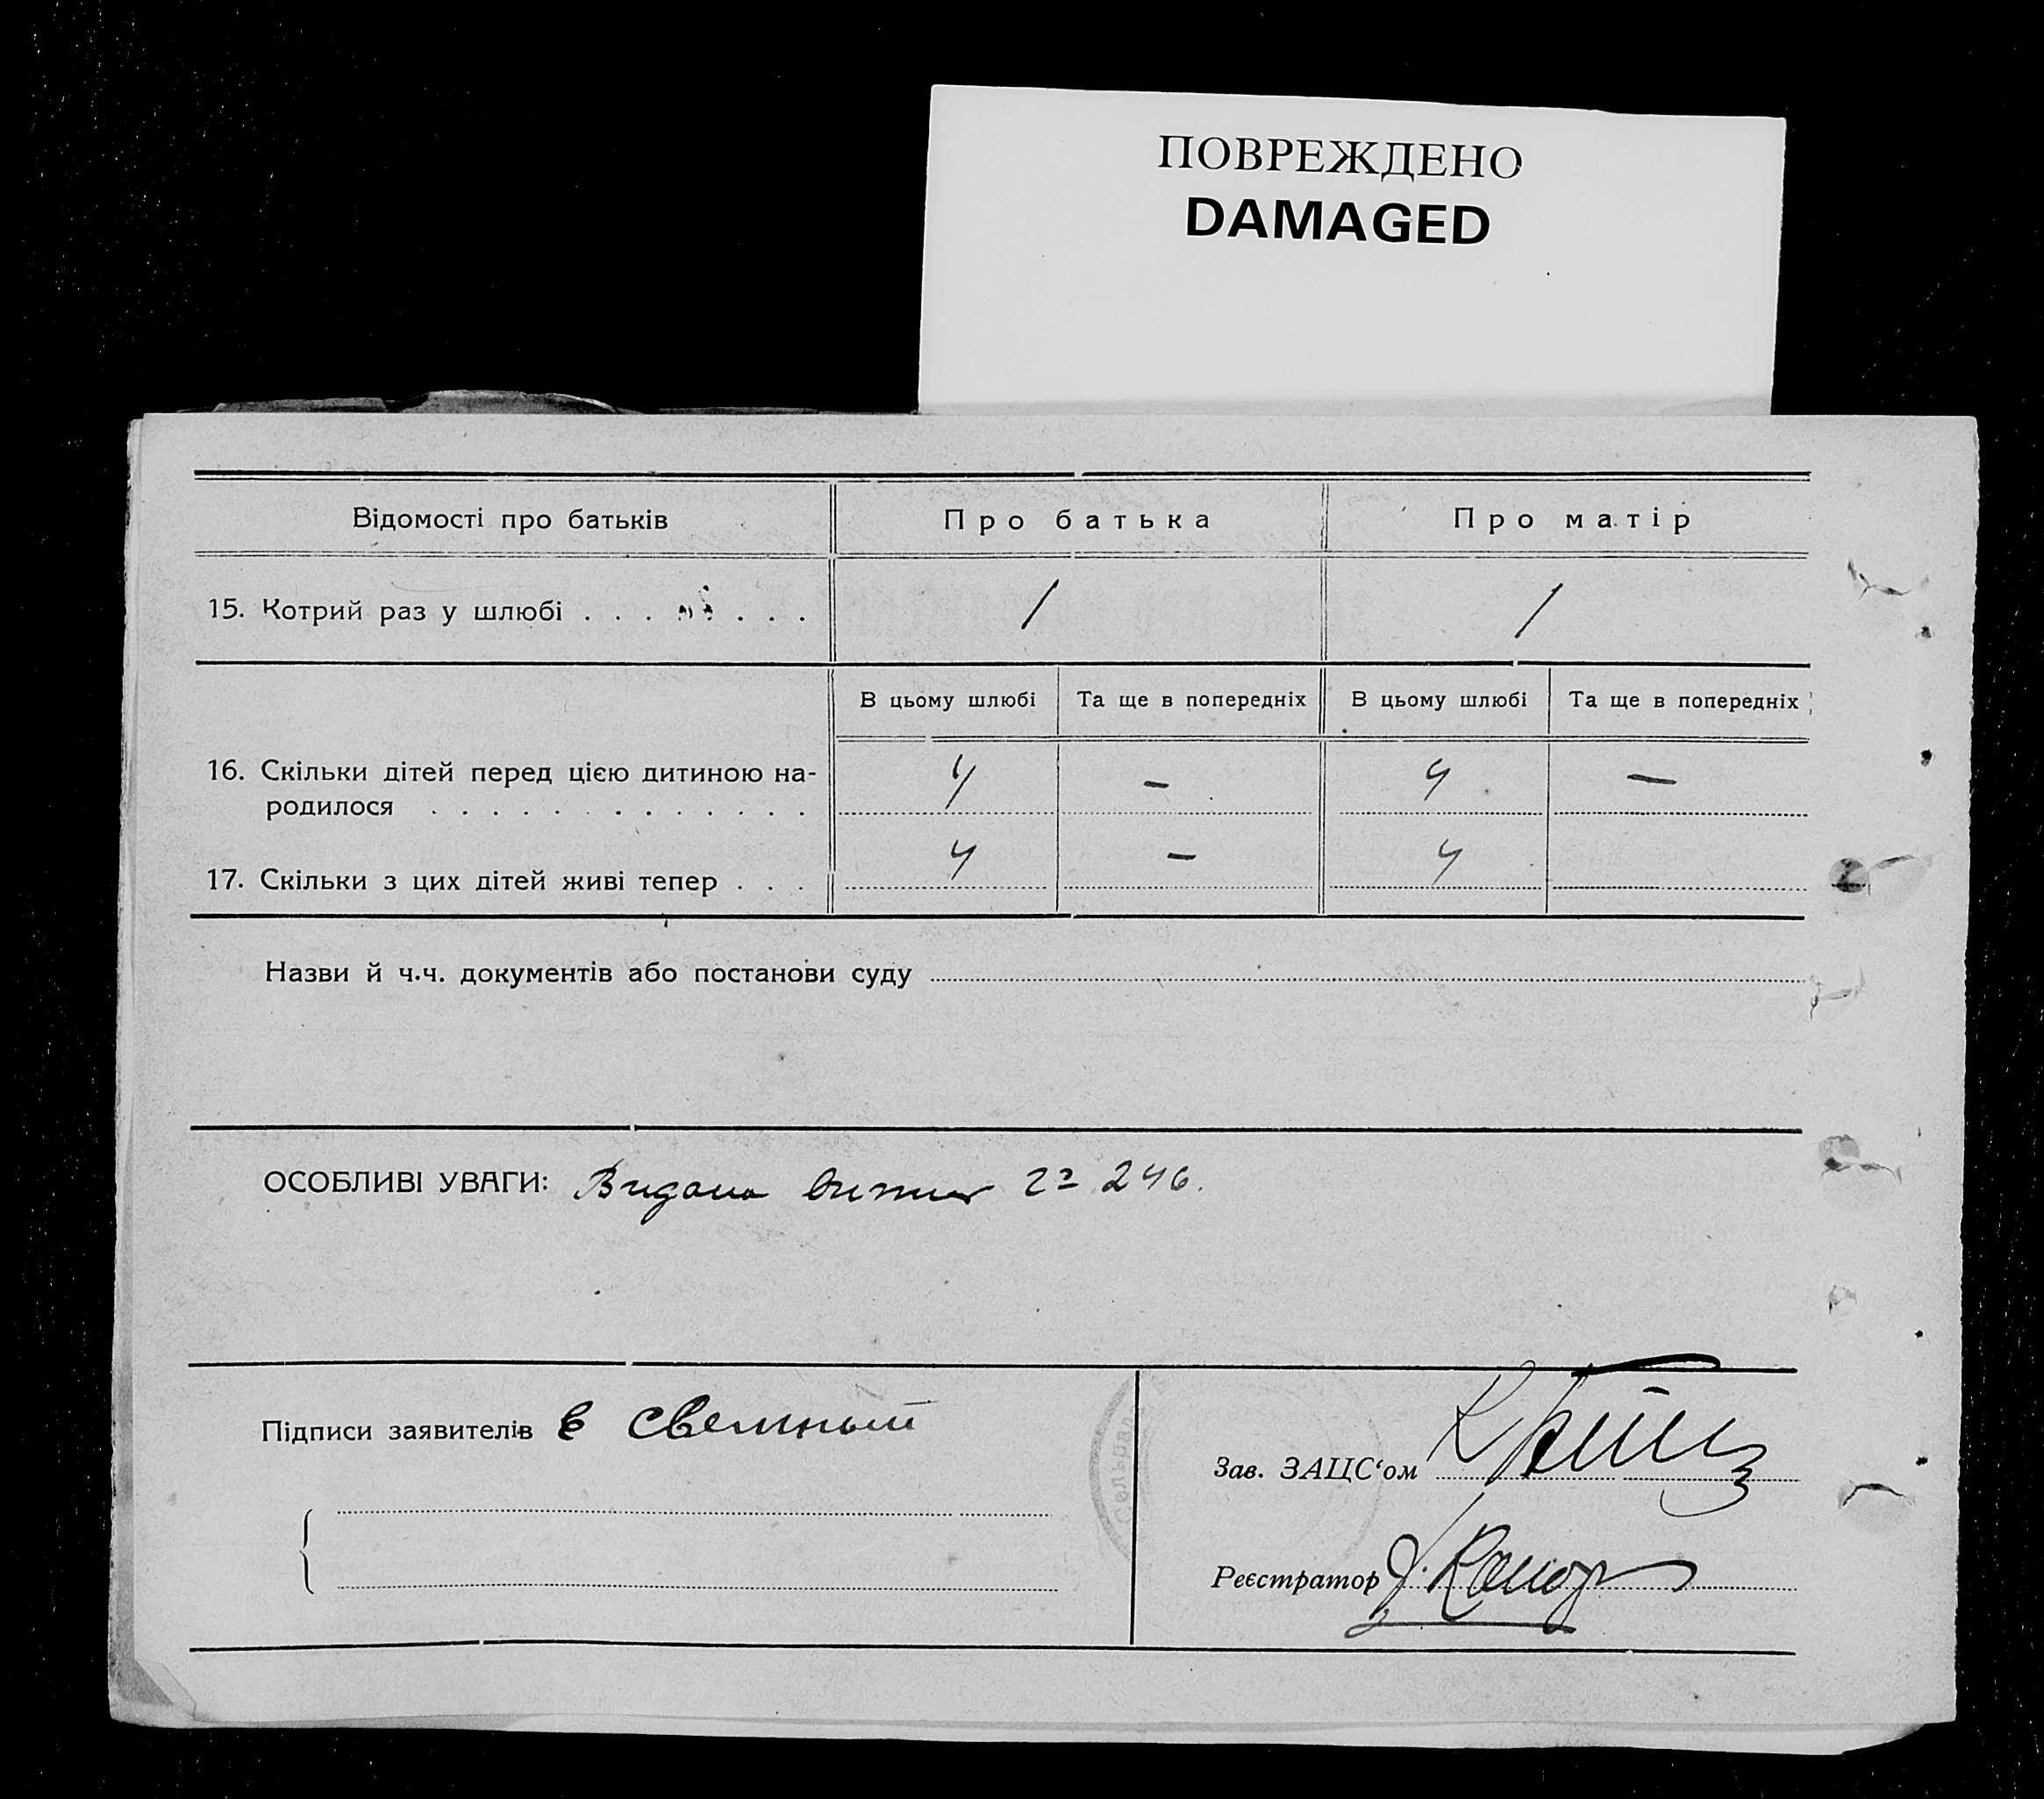 ПОВРЕЖДЕНО
DAMAGED
Відомості про батьків
Про батька
Про матір
15. Котрий раз у шлюбі . . . . . .
/
/
В цьому шлюбі
Та ще в попередніх
В цьому шлюбі
Та ще в попередніх
16. Скільки дітей перед цією дитиною на-
родилося . . . . . . . . . . . . .
4
—
4
—
17. Скільки з цих дітей живі тепер . . .
4
—
4
Назви й ч.ч. документів або постанови суду
ОСОБЛИВІ УВАГИ: Видано 246.
Підписи заявителів
Зав. ЗАЦС‘ом
Реєстратор